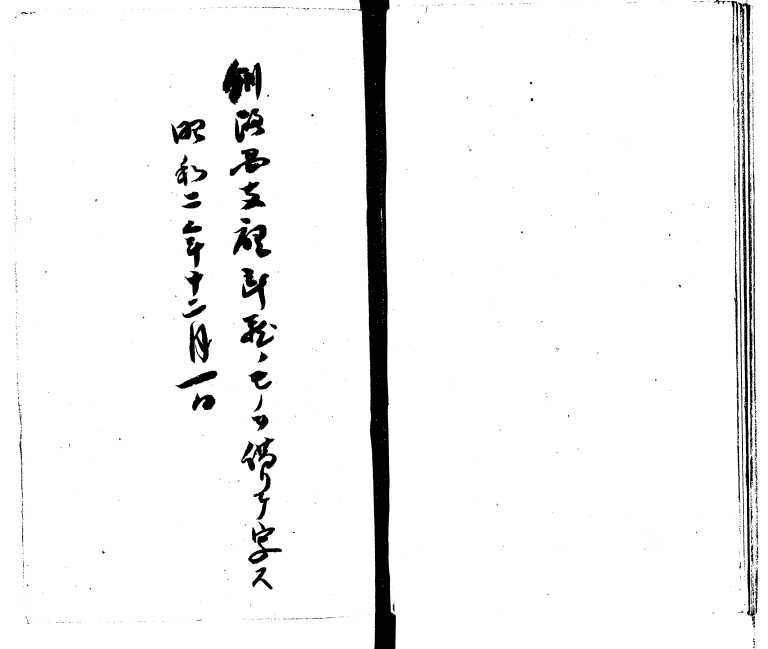 釧路国支廳所蔵ノモノヲ借リテ写ス
昭和二年十二月一日